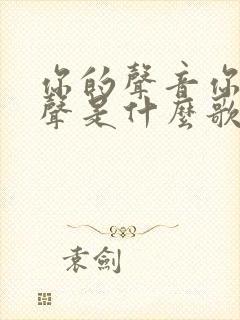 你的聲音你
聲是什麼歌
袁劍